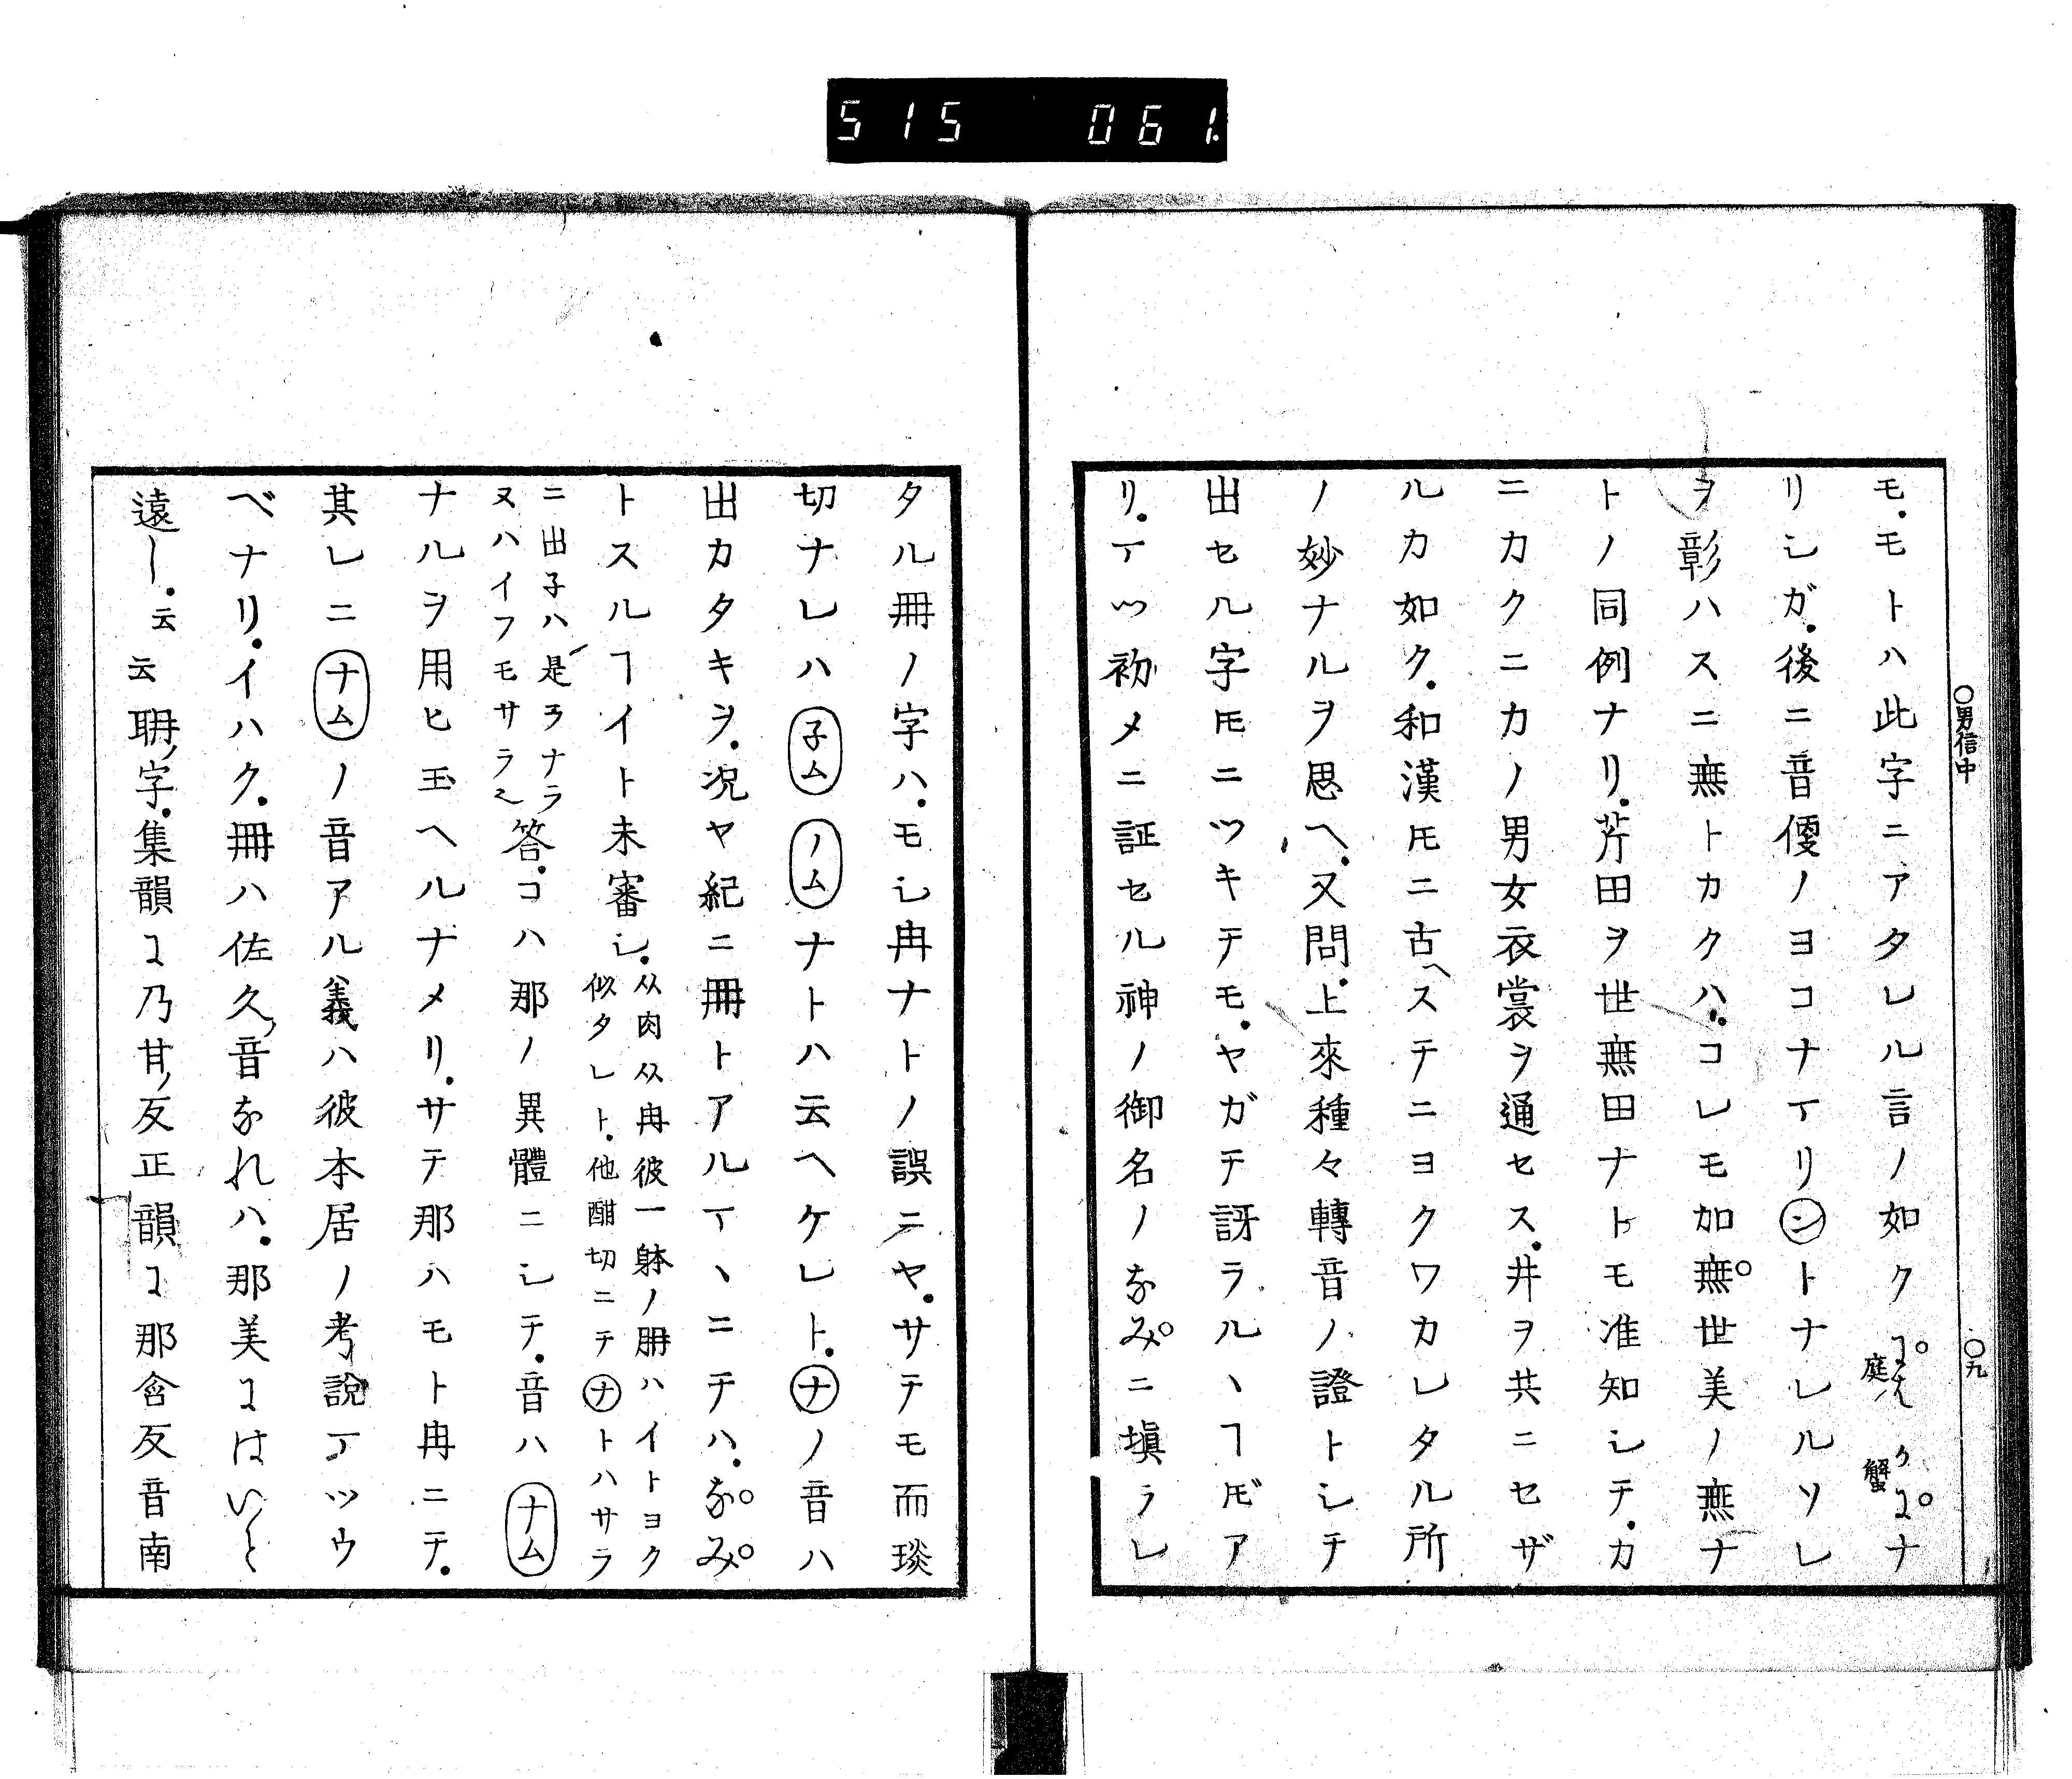 515 061.
〇男信中 〇九
モ.モトハ此字ニアタレル言ノ如ク にはノ庭 かに蟹ナ
リシガ.後ニ音便ノヨコナアリンㇳナレルソレ
ヲ彰ハスニ無トカクハ.コレモ加無世美ノ無ナ
トノ同例ナリ.芹田ヲ世無田ナトモ准知シテ.カ
ニカクニカノ男女衣裳ヲ通セス.井ヲ共ニセザ
ルカ如ク.和漢𪜈ニ古ヘステニヨクワカレタル所
ノ妙ナルヲ思ヘ.又問.上來種々轉音ノ證トシテ
出セル字𪜈ニツキテモ.ヤガテ訝ラルヽヿ𪜈ア
リ.丁ツ初メニ証セル神ノ御名ノなみニ塡ラレ
タル冊ノ字ハ.モシ冉ナトノ誤ニヤ.サテモ而琰
切ナレハ子ムノムナトハ云ヘケレト.ナノ音ハ
出カタキヲ.况ヤ紀ニ冊トアル丁ヽニテハ.なみ
トスルヿイト未審シ.从肉从冉彼一躰ノ𦙫ハイトヨク
似タレト.他酣切ニテナトハサラ
ニ出子ハ是ヲナラ
ヌハイフモサラ也答.コハ那ノ異體ニシテ.音ハナム
ナルヲ用ヒ玉ヘルナメリ.サテ那ハモト冉ニテ.
其レニナムノ音アル義ハ彼本居ノ考說丁ツウ
ベナリ.イハク.冊ハ佐久ノ音なれハ.那美にはいと
遠し.云云聃ノ字.集韻に乃甘ノ反正韻に那含反音南